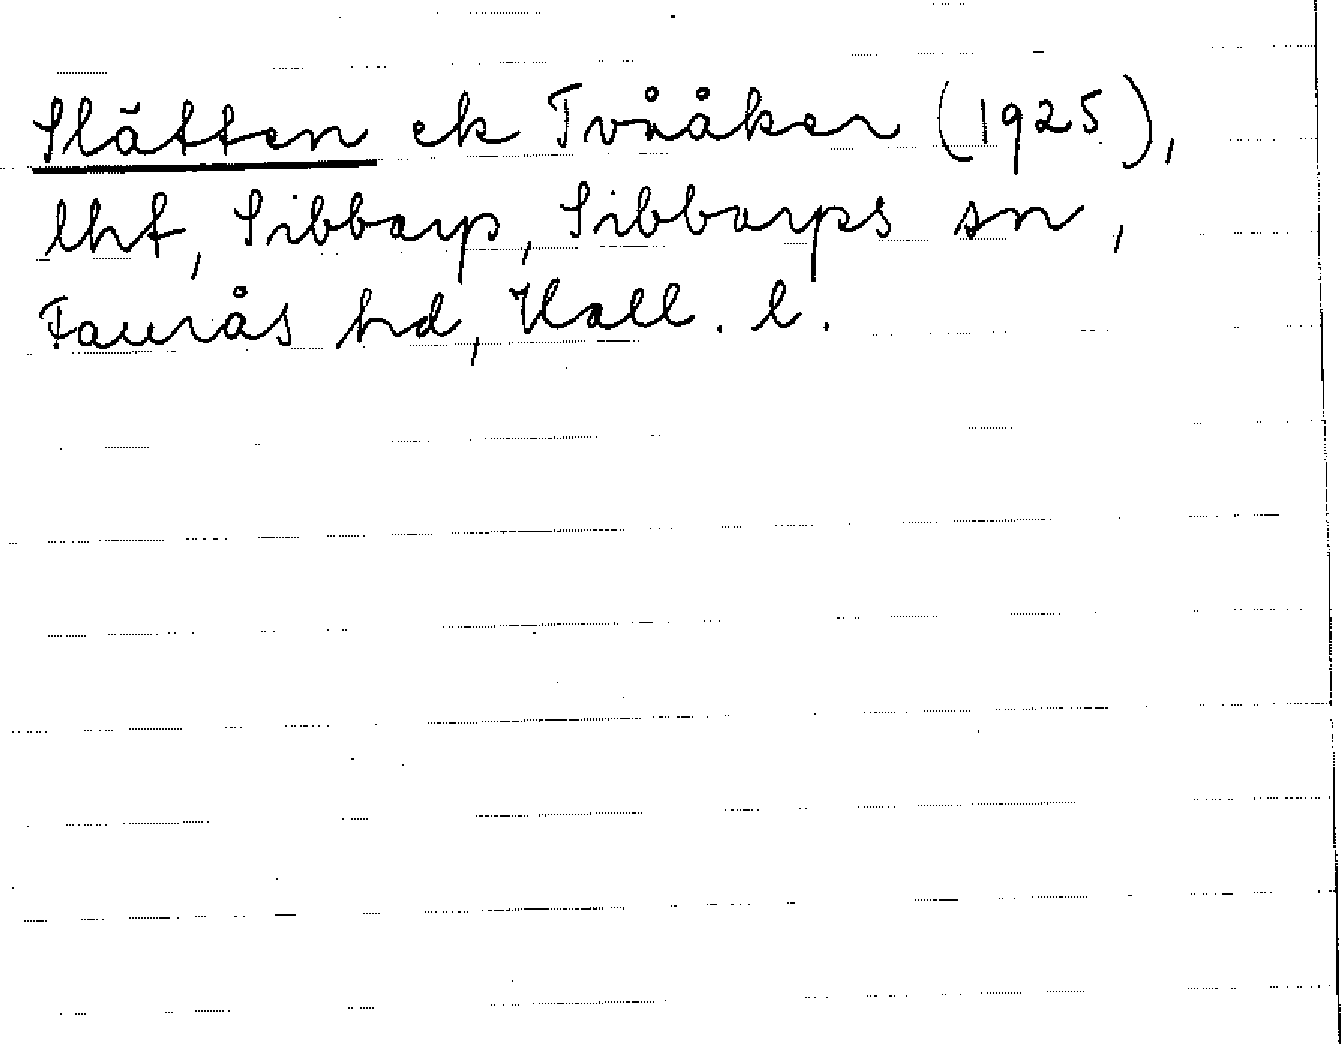 Slätten ek Tvååker (1925),
lht, Sibbarp, Sibbarps sn,
Faurås hd, Hall. l.